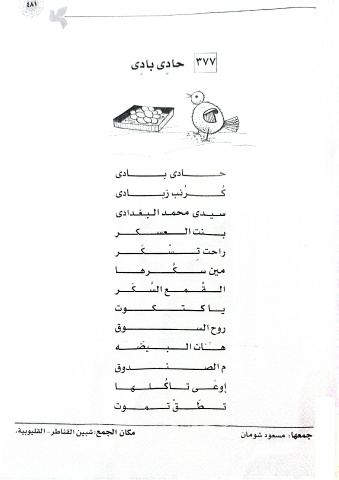 ٤٨١
٣٧٧ حادِي بادِي
حادى بادى
كُرُنب زبادى
سيدى محمد البغدادى
بنت العسكر
راحت تِسْكَر
مين سكُرها
القُمع السُكَر
يا كتكوت
روح السوق
هات البيضه
م الصندوق
إوعَى تاكُلها
تطَقّ تموت
جمعها: مسعود شومان
مكان الجمع: شبين القناطر- القليوبية.